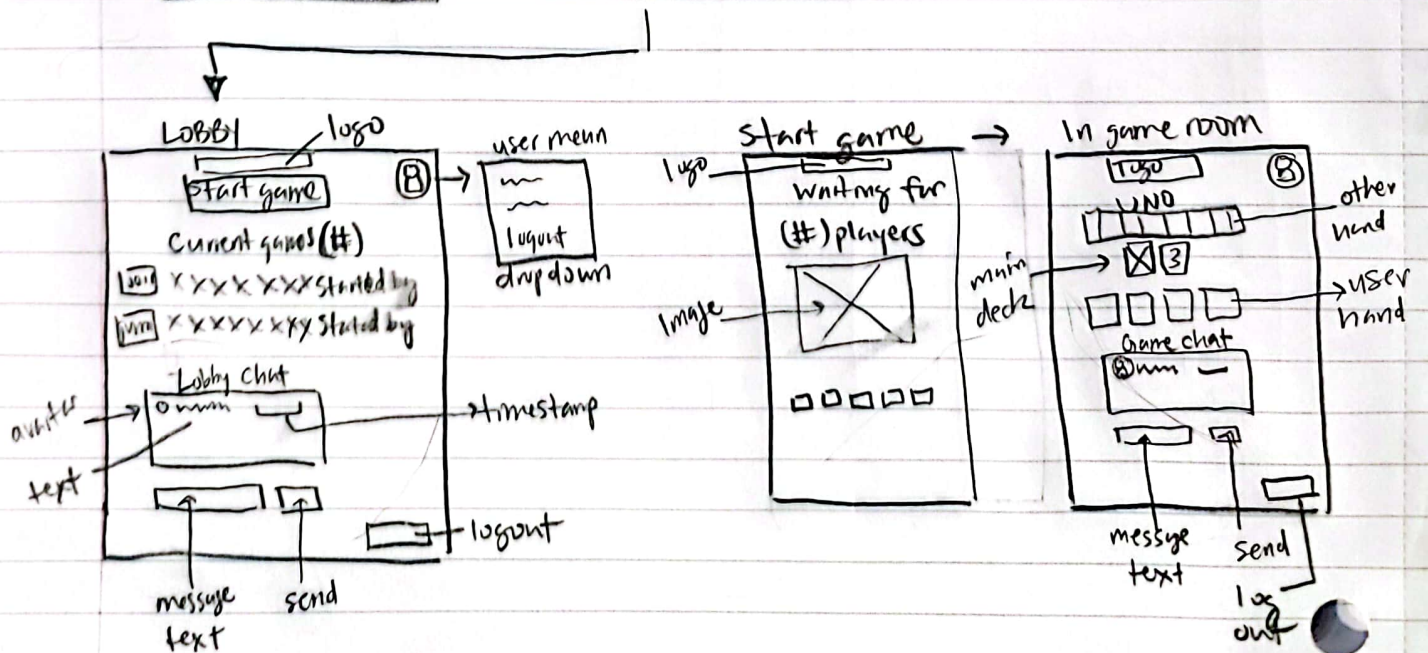 LOBBY
logo
Start game
Current games (#)
join XXXX XXX Started by
XXXXXXXX Stated by
Lobby Chat
timestamp
text
logout
message
text
send
user menu
logout
dropdown
Start game
logo
Waiting for
(#) players
Image
In game room
logo
UNO
other
hand
main
deck
3
user
hand
Game chat
message
text
send
log
out